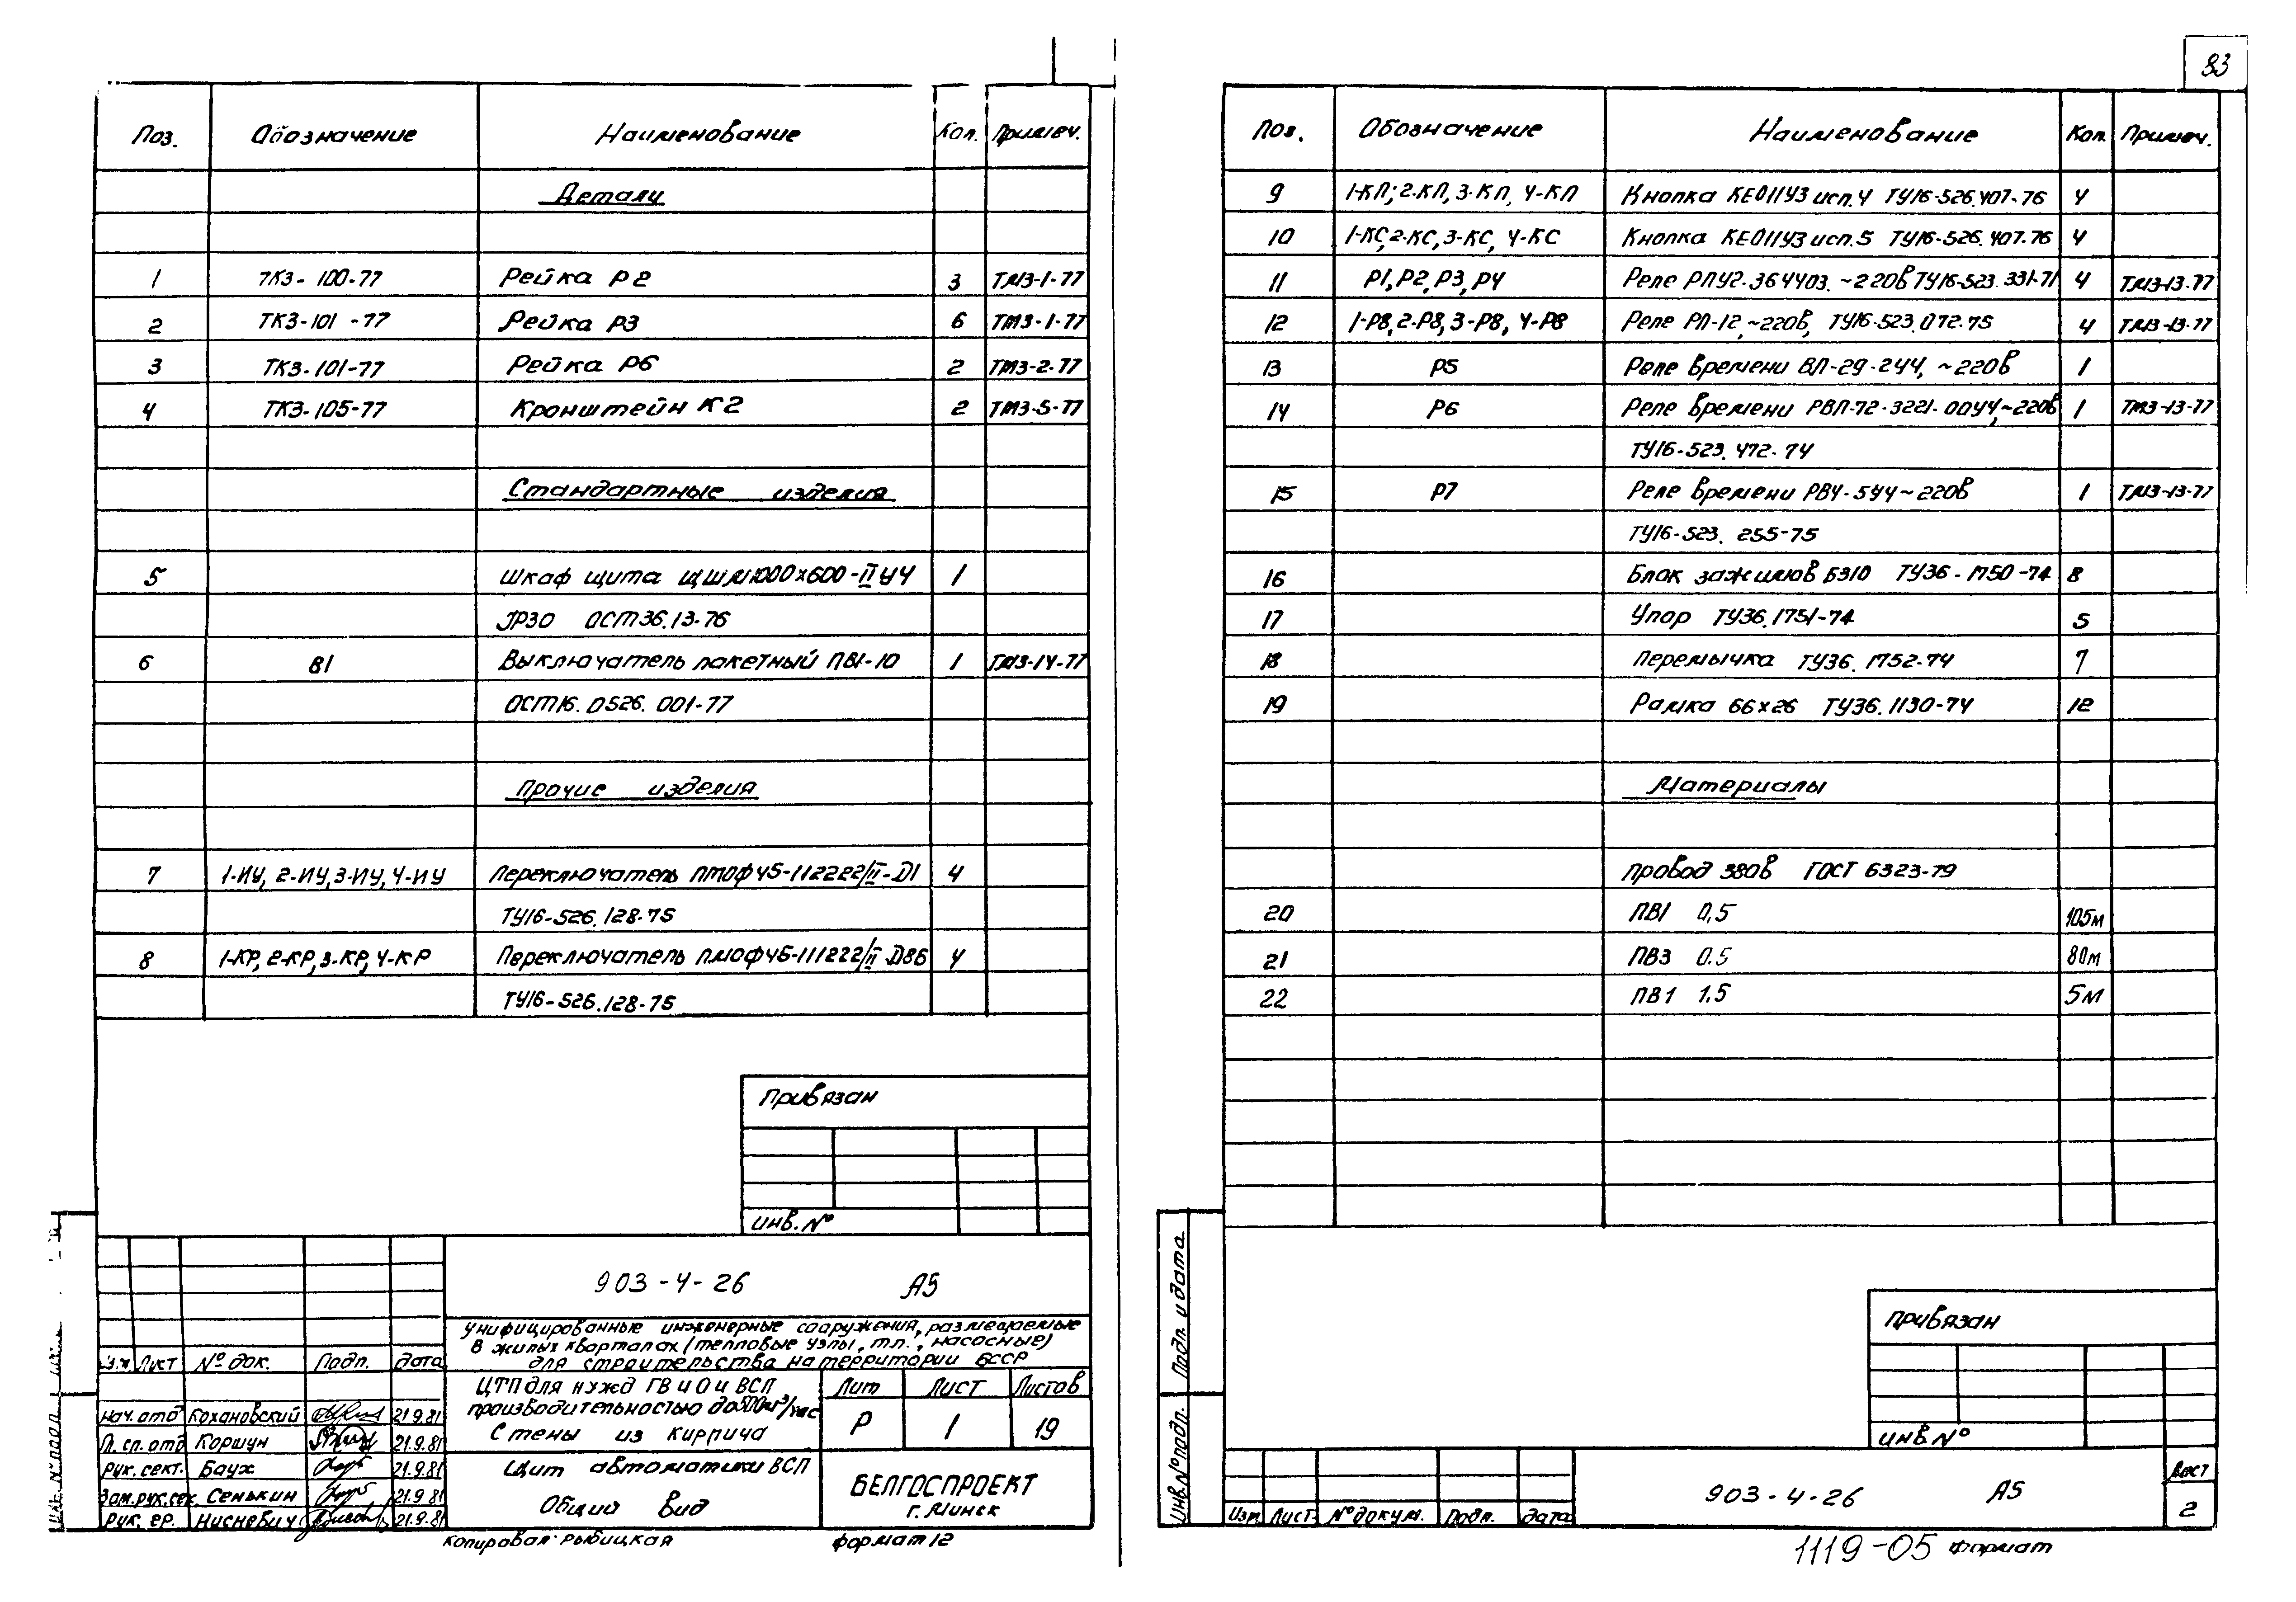 83
Поз. Обозначение Наименование Кол. Примеч.
Детали
1 ТК3-100-77 Рейка Р2 3 ТМ3-1-77
2 ТК3-101-77 Рейка Р3 6 ТМ3-1-77
3 ТК3-101-77 Рейка Р6 2 ТМ3-2-77
4 ТК3-105-77 Кронштейн К2 2 ТМ3-5-77
Стандартные изделия
5 Шкаф щита ЩШМ1000х600-II УЧ 1
JP30 ОСТ36.13-76
6 В1 Выключатель пакетный ПВ1-10 1 ТМ3-14-77
ОСТ16.0526.001-77
Прочие изделия
7 1-ИУ, 2-ИУ, 3-ИУ, 4-ИУ Переключатель ПМОФ45-112222/II-Д1 4
ТУ16-526.128-75
8 1-КР, 2-КР, 3-КР, 4-КР Переключатель ПМОФ45-111222/II-Д86 4
ТУ16-526.128-75
Привязан
инв.№
903-4-26 А5
Унифицированные инженерные сооружения, размещаемые
в жилых кварталах (тепловые узлы, т.п., насосные)
для строительства на территории БССР
Изм Лист № док. Подп. Дата
ЦТП для нужд ГВ и О и ВСП
производительностью до 500м³/час
Стены из кирпича
Лит Лист Листов
Р 1 19
Нач. отд Кохановский 21.9.81
Гл. сп. отд Коршун 21.9.81
Рук. сект. Баух 21.9.81
Зам.рук.сек. Сенькин 21.9.81
Рук. гр. Нисневич 21.9.81
Щит автоматики ВСП
Общий вид
БЕЛГОСПРОЕКТ
г. Минск
Копировал: Рыбицкая формат 12
Поз. Обозначение Наименование Кол. Примеч.
9 1-КП; 2-КП, 3-КП, 4-КП Кнопка КЕ011У3 исп.4 ТУ16-526.407-76 4
10 1-КС, 2-КС, 3-КС, 4-КС Кнопка КЕ011У3 исп.5 ТУ16-526.407-76 4
11 Р1, Р2, Р3, Р4 Реле РПУ2-364403. ~220В ТУ16-523.331-71 4 ТМ3-13-77
12 1-Р8, 2-Р8, 3-Р8, 4-Р8 Реле РП-12, ~220В, ТУ16-523.072-75 4 ТМ3-13-77
13 Р5 Реле времени ВЛ-29-2УЧ, ~220В 1
14 Р6 Реле времени РВП-72-3221-00У4, ~220В 1 ТМ3-13-77
ТУ16-523.472-74
15 Р7 Реле времени РВ4-5У4 ~220В 1 ТМ3-13-77
ТУ16-523.255-75
16 Блок зажимов БЗ10 ТУ36-1750-74 8
17 Упор ТУ36.1751-74 5
18 Перемычка ТУ36.1752-74 7
19 Рамка 66х26 ТУ36.1130-74 12
Материалы
Провод 380В ГОСТ 6323-79
20 ПВ1 0,5 105м
21 ПВ3 0.5 80м
22 ПВ1 1.5 5м
Привязан
инв.№
Подп. и дата
Инв.№ подл.
Изм Лист № докум. Подп. Дата
903-4-26 А5
Лист
2
1119-05 формат